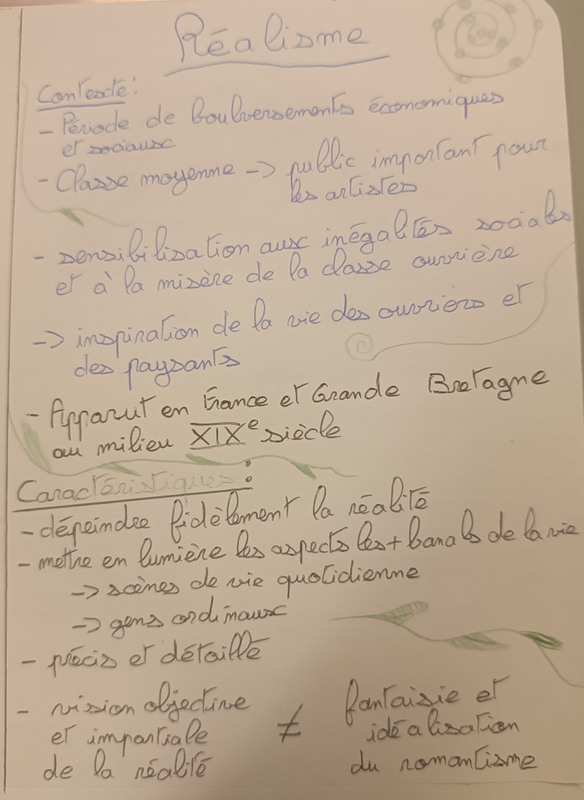 Réalisme
Contexte:
- Période de boulversements économiques
et sociaux
- Classe moyenne -> public important pour
les artistes
- sensibilisation aux inégalités sociales
et à la misère de la classe ouvrière
-> inspiration de la vie des ouvriers et
des paysants
- Apparut en France et Grande Bretagne
au milieu XIXe siècle
Caractéristiques:
- dépeindre fidèlement la réalité
- mettre en lumière les aspects les + banals de la vie
-> scènes de vie quotidienne
-> gens ordinaux
- précis et détaillé
- vision objective
et impartiale
de la réalité
≠
fantaisie et
idéalisation
du romantisme